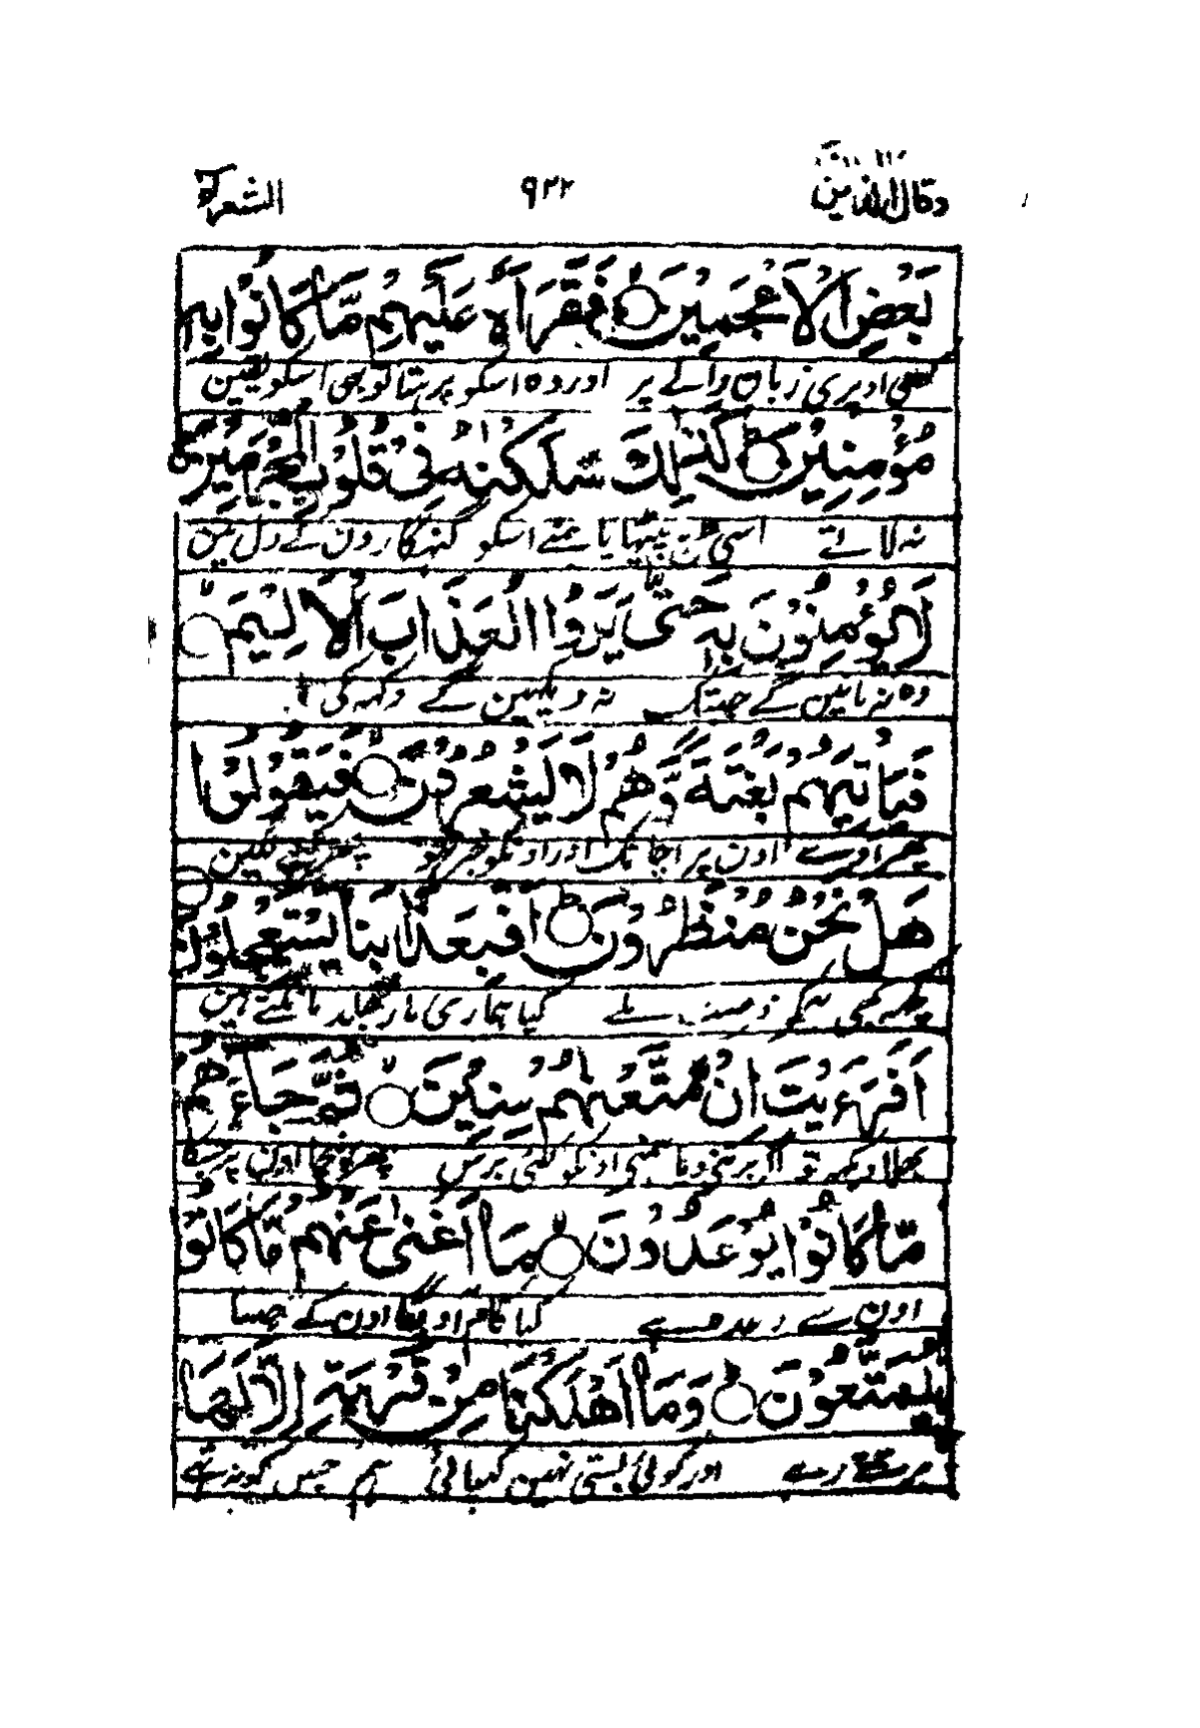 وقال الذين ٩٢٢ الشعراء
بَعْضِ الْاَعْجَمِيْنَ ۙ فَقَرَاَهٗ عَلَيْهِمْ مَّا كَانُوْا بِهٖ
کسی اوپری زبان والے پر اور وہ اسکو پڑہتا تو بھی اسکو یقین
مُؤْمِنِيْنَ ؕ كَذٰلِكَ سَلَكْنٰهُ فِيْ قُلُوْبِ الْمُجْرِمِيْنَ
نہ لاتے اسی طرح پیٹھایا ہمنے اسکو گنہگارون کے دل مین
لَا يُؤْمِنُوْنَ بِهٖ حَتّٰى يَرَوُا الْعَذَابَ الْاَلِيْمَ ۙ
وہ نہ مانین گے جبتک نہ دیکھین گے دکھہ کی
فَيَاْتِيَهُمْ بَغْتَةً وَّهُمْ لَا يَشْعُرُوْنَ ۙ فَيَقُوْلُوْا
پھر آوے اون پر اچانک اور اونکو خبر نہو پھر کہنے لگین
هَلْ نَحْنُ مُنْظَرُوْنَ ؕ اَفَبِعَذَابِنَا يَسْتَعْجِلُوْنَ
کچھہ بھی ہمکو فرصت ملے کیا ہماری مار جلد مانگتے ہین
اَفَرَءَيْتَ اِنْ مَّتَّعْنٰهُمْ سِنِيْنَ ۙ ثُمَّ جَآءَهُمْ
بھلا دیکھہ تو اگر برتنے دیا ہمنے اونکو کئی برس پھر پہنچا اون پر جسکا
مَّا كَانُوْا يُوْعَدُوْنَ ۙ مَآ اَغْنٰى عَنْهُمْ مَّا كَانُوْا
اون سے وعدہ ہے کیا کام آویگا اون کے جتنا
يُمَتَّعُوْنَ ؕ وَمَآ اَهْلَكْنَا مِنْ قَرْيَةٍ اِلَّا لَهَا
برتتے رہے اور کوئی بستی نہین کھپائی ہم جس کو نہ تھے